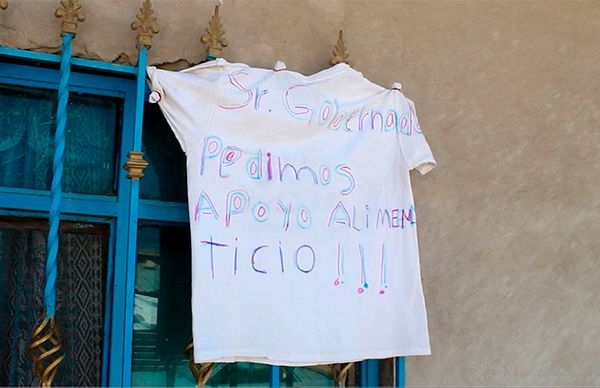 Sr. Gobernador
Pedimos
APOYO ALIMEN
TICIO!!!